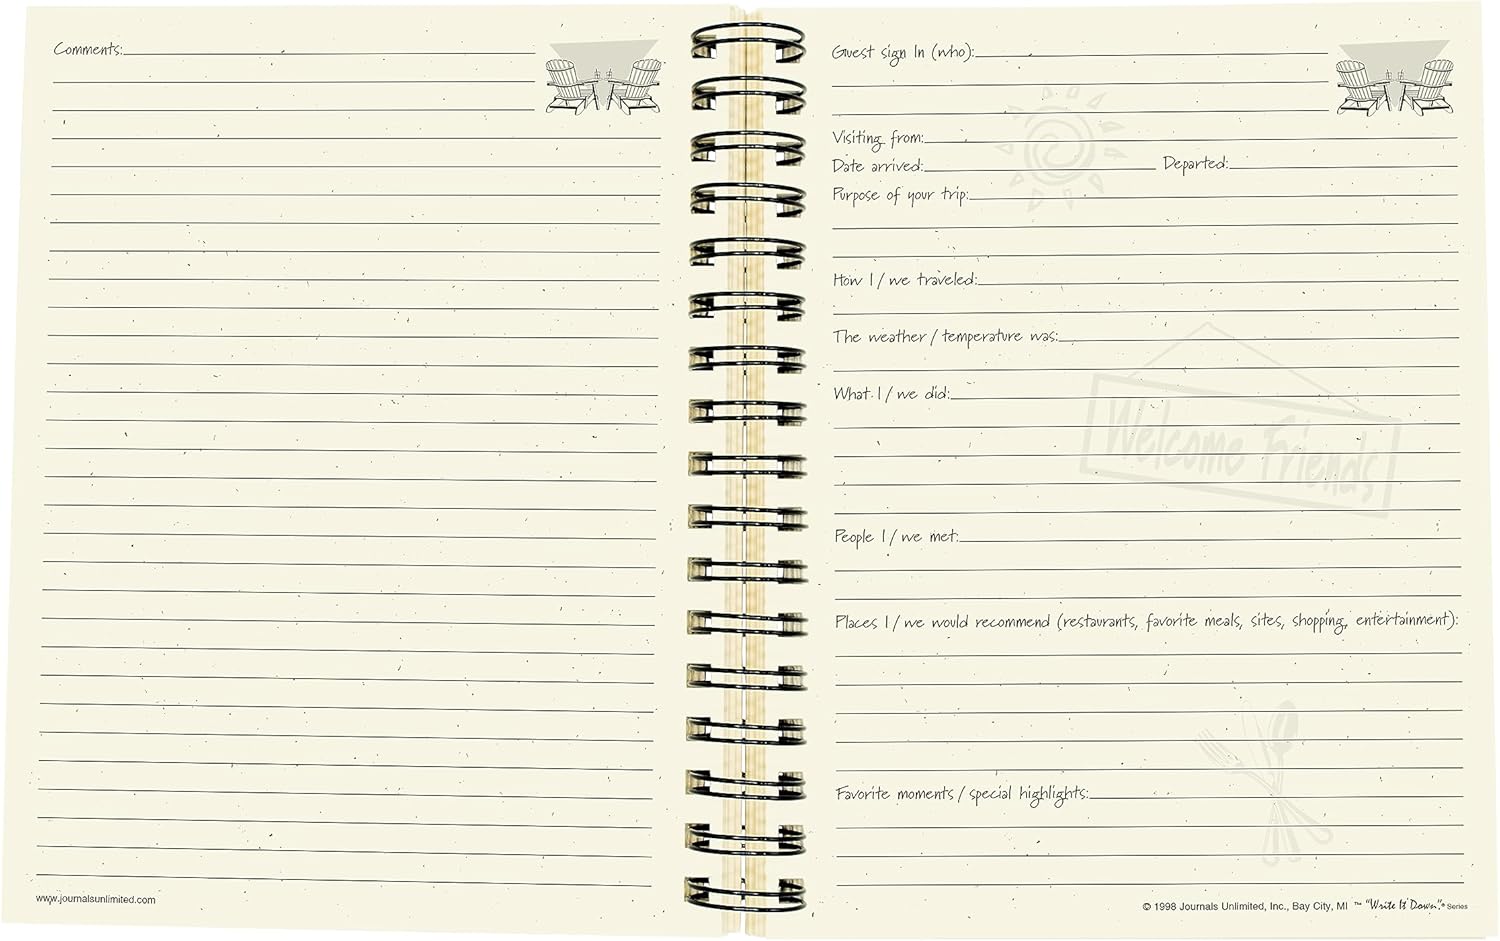 Comments:
www.journalsunlimited.com
Guest sign In (who):
Visiting from:
Date arrived: Departed:
Purpose of your trip:
How I / we traveled:
The weather / temperature was:
What I / we did:
Welcome Friends
People I / we met:
Places I / we would recommend (restaurants, favorite meals, sites, shopping, entertainment):
Favorite moments / special highlights:
© 1998 Journals Unlimited, Inc., Bay City, MI ™ "Write It Down."® Series